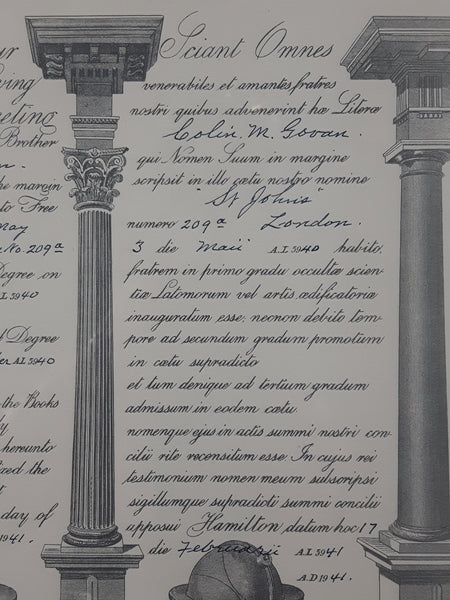 ur
ving
eeting
Brother
n.
he margin
to Free
May
No. 209a
Degree on
A.L 5940
d Degree
er A.L 5940
the Books
y
hereunto
ixed the
t
day of
1941.
Sciant Omnes
venerabiles et amantes fratres
nostri quibus advenerint hæ Literæ
Colin. M. Govan.
qui Nomen Suum in margine
scripsit in illo cœtu nostro nomine
"St Johns"
numero 209a London.
3 die Maii A.L 5940 habito,
fratrem in primo gradu occultæ scien-
tiæ Latomorum vel artis ædificatoriæ
inauguratum esse; necnon debito tem-
pore ad secundum gradum promotum
in cœtu supradicto
et tum denique ad tertium gradum
admissum in eodem cœtu.
nomenque ejus in actis summi nostri con-
cilii rite recensitum esse. In cujus rei
testimonium nomen meum subscripsi
sigillumque supradicti summi concilii
apposui Hamilton, datum hoc 17
die Februarii A.L 5941
A.D 1941.